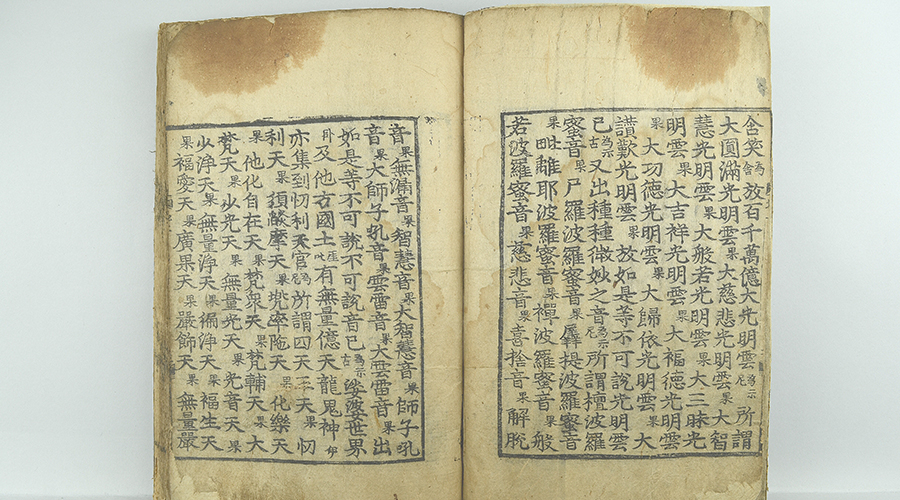 含笑為舍放百千萬億大光明雲為示尼所謂
大圓滿光明雲果大慈悲光明雲果大智
慧光明雲果大般若光明雲果大三昧光
明雲果大吉祥光明雲果大福德光明雲
果大功德光明雲果大歸依光明雲果大
讃歎光明雲果放如是等不可說光明雲
已古又出種種微妙之音為示尼所謂檀波羅
蜜音果尸羅波羅蜜音果羼提波羅蜜音
果毗離耶波羅蜜音果禪波羅蜜音果般
若波羅蜜音果慈悲音果喜捨音果解脫
音果無漏音果智慧音果大智慧音果師子吼
音果大師子吼音果雲雷音果大雲雷音果出
如是等不可說不可說音已古娑婆世界
及他方國土叱有無量億天龍鬼神
亦集到忉利天宮為尼所謂四天王天果忉
利天果須燄摩天果兜率陁天果化樂天
果他化自在天果梵衆天果梵輔天果大
梵天果少光天果無量光天果光音天果
少淨天果無量淨天果徧淨天果福生天
果福愛天果廣果天果嚴飾天果無量嚴